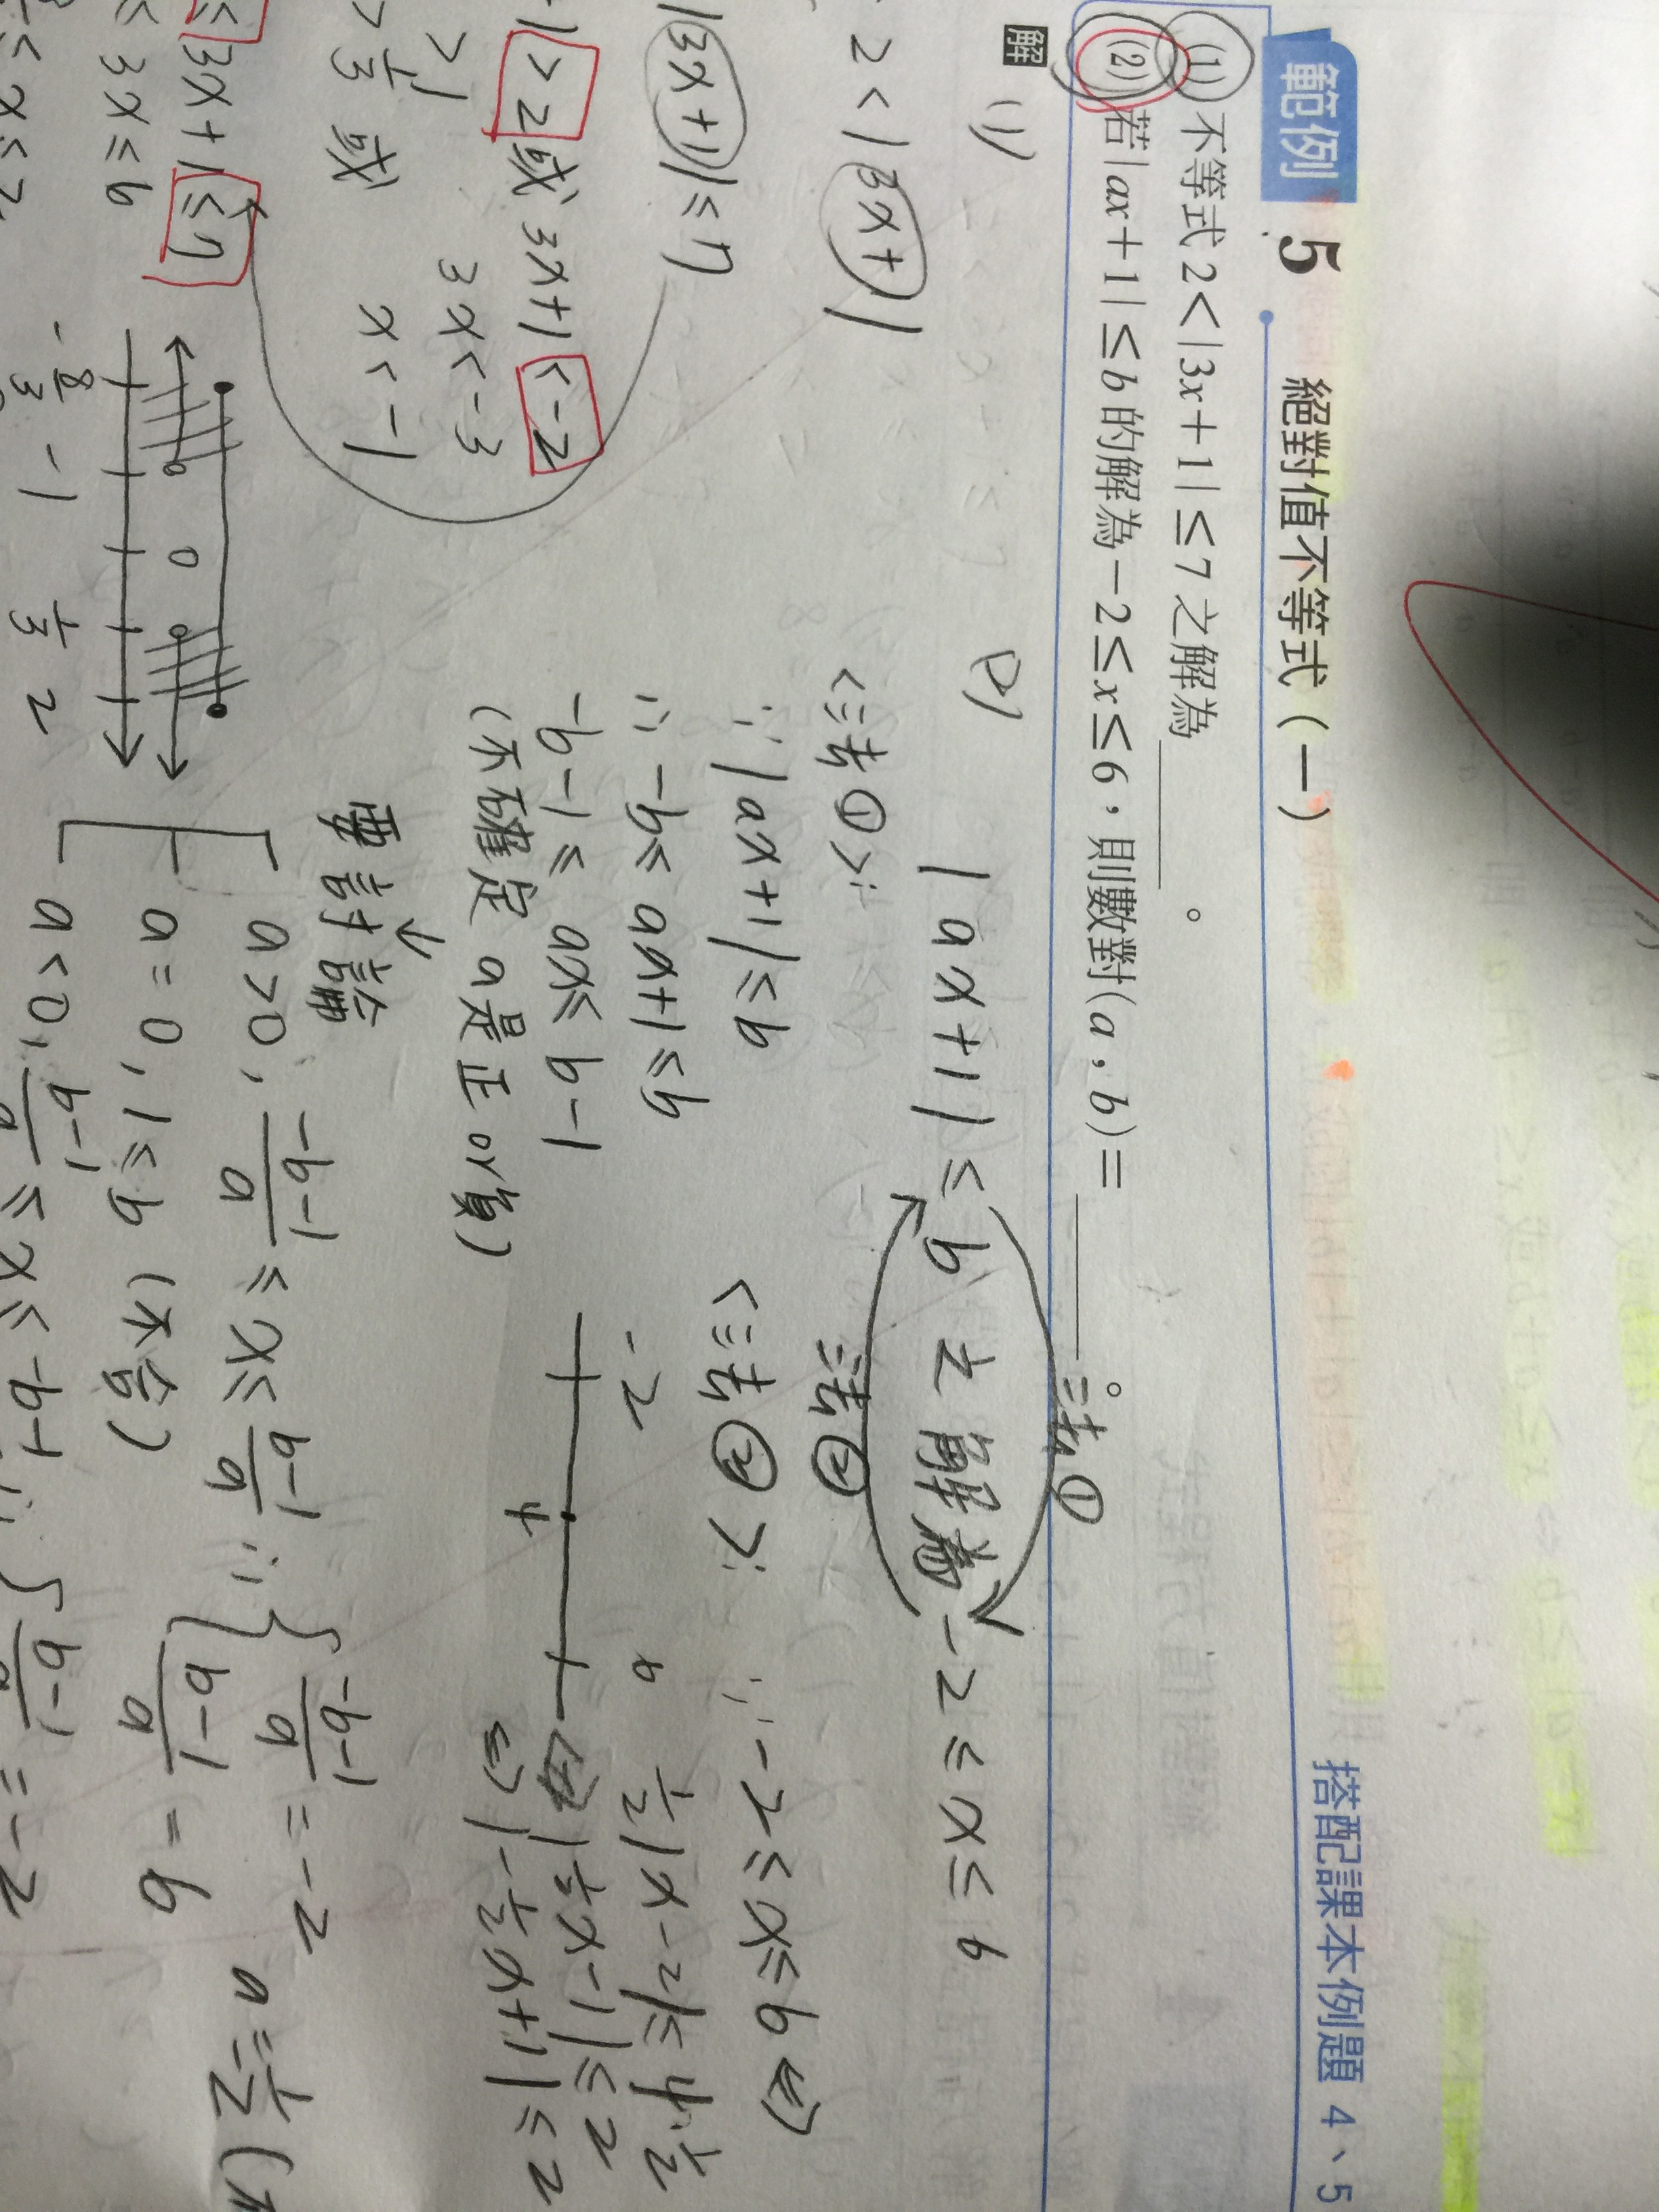 範例 5 絕對值不等式（一） 搭配課本例題 4、5
(1) 不等式 2<|3x+1|≤7 之解為______。
(2) 若|ax+1|≤b 的解為-2≤x≤6，則數對(a, b)=______。
解
(1)
2<|3x+1|
|3x+1|≤7
+1>2 或 3x+1<-2
3x<-3
>1/3 或 x<-1
≤3x+1≤7
≤3x≤6
≤x≤2
-8/3 -1 0 1/3 2
(2)
|ax+1|≤b 之解為 -2≤x≤6
法①
法②
<法①>:
∵|ax+1|≤b
∴-b≤ax+1≤b
-b-1≤ax≤b-1
(不確定 a是正or負)
要討論
a>0, (-b-1)/a ≤x≤ (b-1)/a ∴ { (-b-1)/a = -2
(b-1)/a = 6
a=-1/2
a=0, 1≤b (不合)
a<0, (b-1)/a ≤x≤ ∴ { (b-1)/a = -2
<法②>:
∵-2≤x≤6 ⇔
-2 6
4
1/2|x-2|≤4·1/2
|1/2x-1|≤2
⇔|-1/2x+1|≤2